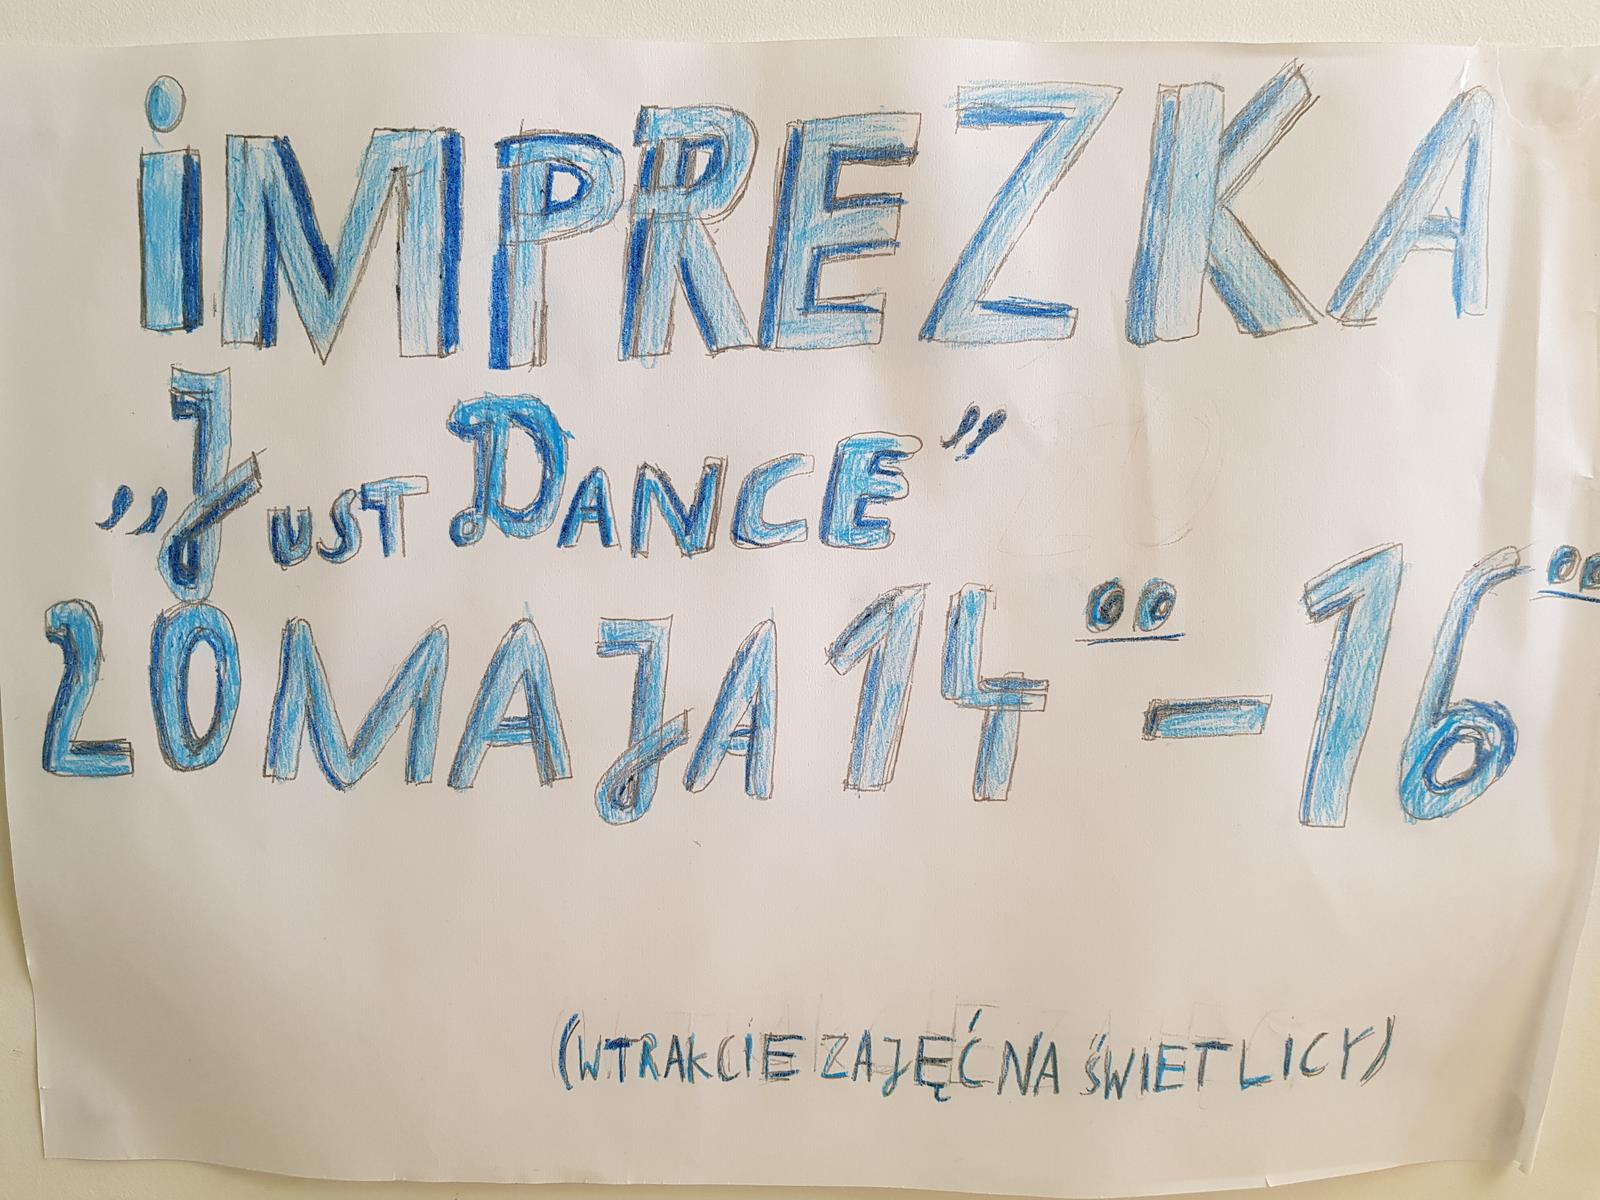 iMPREZKA
„Just Dance”
20 MAJA 14⁰⁰ – 16⁰⁰
(W TRAKCIE ZAJĘĆ NA ŚWIETLICY)